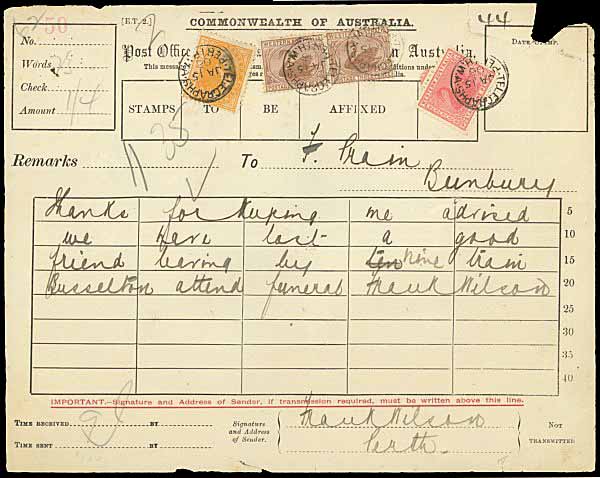 50 [E.T. 2.] 2 COMMONWEALTH OF AUSTRALIA. 44
No.
Post Office Australia.
DATE STAMP.
Words 35
This message
Check
Amount 1/4
STAMPS TO BE AFFIXED
35
Remarks To F. Prain
Bunbury
Thanks for keeping me advised 5
we have lost a good 10
friend leaving by ten nine train 15
Busselton attend funeral Frank Wilson 20
25
30
35
40
IMPORTANT.—Signature and Address of Sender, if transmission required, must be written above this line.
TIME RECEIVED BY
Signature and Address of Sender.
Frank Wilson
Perth.
NOT TRANSMITTED
TIME SENT BY